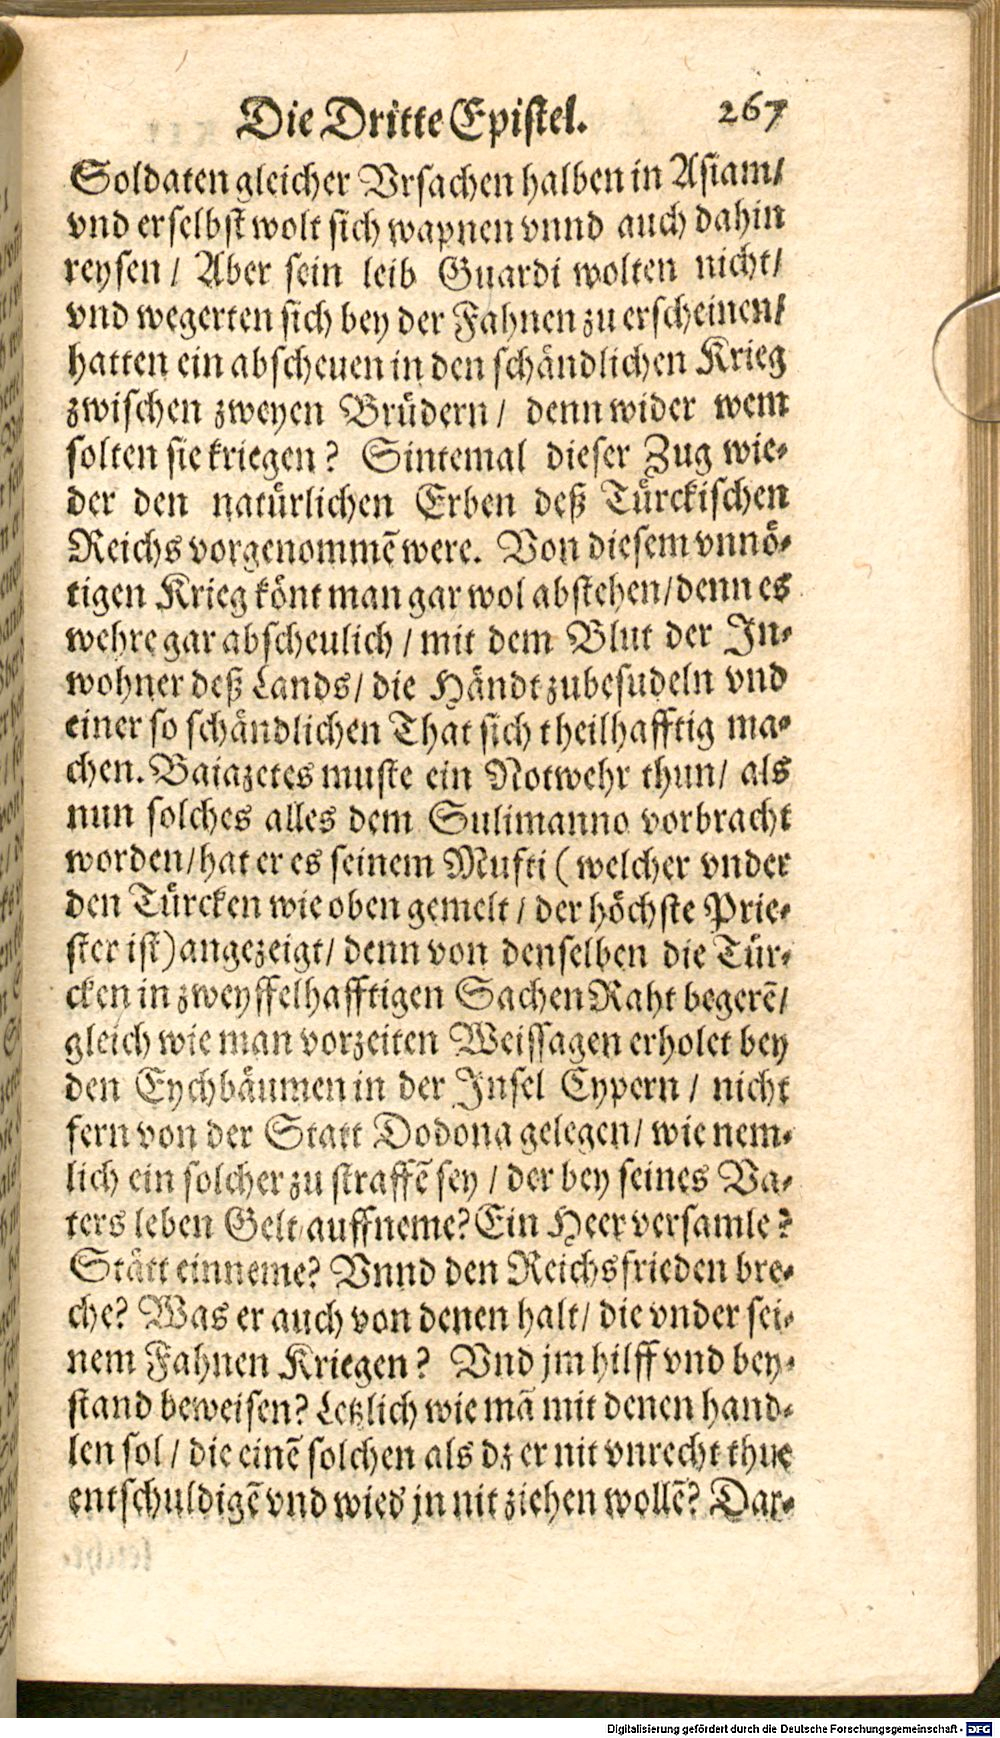 Die Dritte Epistel. 267
Soldaten gleicher Vrsachen halben in Asiam/
vnd er selbst wolt sich wapnen vnnd auch dahin
reysen / Aber sein leib Guardi wolten nicht/
vnd wegerten sich bey der Fahnen zu erscheinen/
hatten ein abscheuen in den schändlichen Krieg
zwischen zweyen Brüdern / denn wider wem
solten sie kriegen? Sintemal dieser Zug wie-
der den natürlichen Erben deß Türckischen
Reichs vorgenommē were. Von diesem vnnö-
tigen Krieg könt man gar wol abstehen/denn es
wehre gar abscheulich / mit dem Blut der In-
wohner deß Lands/ die Händt zubesudeln vnd
einer so schändlichen That sich theilhafftig ma-
chen. Baiazetes muste ein Notwehr thun/ als
nun solches alles dem Sulimanno vorbracht
worden/hat er es seinem Mufti ( welcher vnder
den Türcken wie oben gemelt / der höchste Prie-
ster ist) angezeigt/ denn von denselben die Tür-
cken in zweyffelhafftigen Sachen Raht begerē/
gleich wie man vorzeiten Weissagen erholet bey
den Eychbäumen in der Insel Cypern / nicht
fern von der Statt Dodona gelegen/ wie nem-
lich ein solcher zu straffē sey / der bey seines Va-
ters leben Gelt auffneme? Ein Heer versamle?
Stätt einneme? Vnnd den Reichsfrieden bre-
che? Was er auch von denen halt/ die vnder sei-
nem Fahnen Kriegen? Vnd jm hilff vnd bey-
stand beweisen? Letzlich wie mā mit denen hand-
len sol / die einē solchen als dz er nit vnrecht thue
entschuldigē vnd wieds jn nit ziehen wollē? Dar-
Digitalisierung gefördert durch die Deutsche Forschungsgemeinschaft - DFG